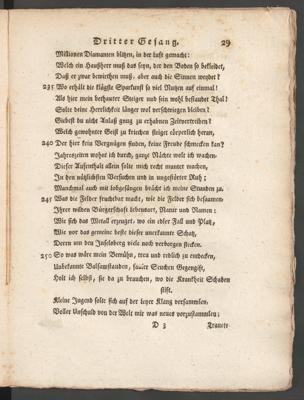 Dritter Gesang. 29
Millionen Diamanten blitzen, in der luft gemacht:
Welch ein Haußherr muß das seyn, der den Boden so bekleidet,
Daß er zwar bewirthen muß, aber auch die Sinnen weydet?
235 Wo erhält die klügste Sparkunst so viel Nutzen auf einmal!
Als hier mein behaunter Steiger und sein wohl bestaudet Thal!
Solte deine Herrlichkeit länger wol verschwiegen bleiben?
Giebest du nicht Anlaß gnug zu erhabnen Zeitvertreiben?
Welch gewohnter Geist zu kriechen steiget cörperlich heran,
240 Der hier kein Vergnügen finden, keine Freude schmecken kan?
Jahreszeiten wohnt ich durch, ganze Nächte wolt ich wachen
Dieser Aufenthalt allein solte mich recht munter machen,
In den nützlichsten Versuchen und in ungestörter Ruh;
Manchmal auch mit lobgesängen brächt ich meine Stunden zu.
245 Was die Felder fruchtbar macht, wie die Felder sich besaamen
Ihrer wilden Bürgerschafft lebensart, Natur und Namen:
Wie sich das Metall erzeuget, wo ein edler Fall und Platz,
Wie vor das gemeine beste dieser unerkannte Schatz,
Deren um den Inselsberg viele noch verborgen stecken.
250 So was wäre mein Bemühn, treu und redlich zu entdecken,
Unbekannte Balsamstauden, saurer Seuchen Gegengift,
Holt ich selbst, sie da zu brauchen, wo die Krankheit Schaden
stift.
Kleine Jugend solte sich auf der leyer Klang versammlen:
Voller Unschuld von der Welt mir was neues vorzustammlen:
D 3 Trauete